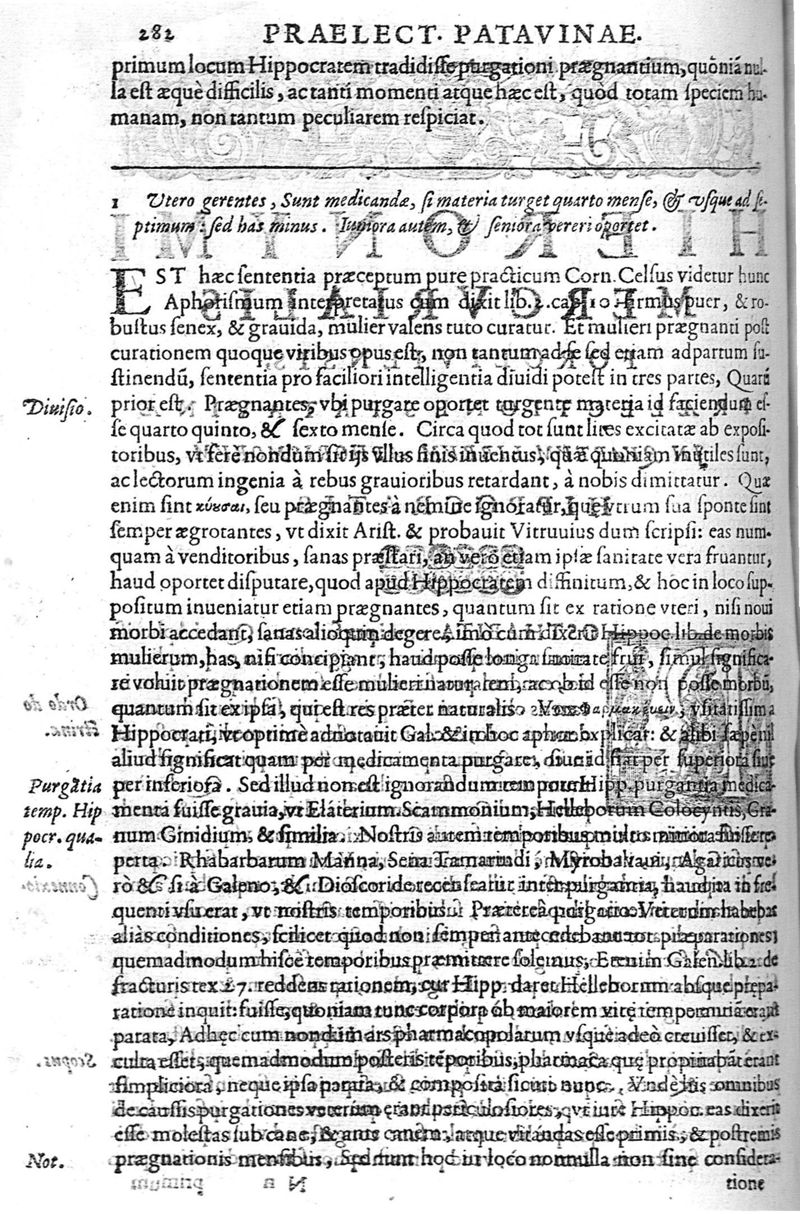 282 PRAELECT. PATAVINAE.
primum locum Hippocratem tradidisse purgationi prægnantium, quoniã nul-
la est æquè difficilis, ac tanti momenti atque hæc est, quòd totam speciem hu-
manam, non tantum peculiarem respiciat.
1 Vtero gerentes, Sunt medicandæ, si materia turget quarto mense, & vsque ad se-
ptimum: sed has minus. Iuniora autem, & seniora vereri oportet.
EST hæc sententia præceptum pure practicum Corn. Celsus videtur hunc
Aphorismum interpretatus cum dixit lib. 2. cap. 10 Firmus puer, & ro-
bustus senex, & grauida, mulier valens tuto curatur. Et mulieri prægnanti post
curationem quoque viribus opus est, non tantum ad se sed etiam ad partum su-
stinendũ, sententia pro faciliori intelligentia diuidi potest in tres partes, Quarũ
Diuisio.
prior est. Prægnantes, vbi purgare oportet turgente materia id faciendum es-
se quarto quinto, & sexto mense. Circa quod tot sunt lites excitatæ ab exposi-
toribus, vt ferè nondum sit ijs vllus finis inuentus, quæ quoniam inutiles sunt,
ac lectorum ingenia à rebus grauioribus retardant, à nobis dimittatur. Quæ
enim sint κύουσαι, seu prægnantes à nemine ignoratur, sua sponte sint
semper ægrotantes, vt dixit Arist. & probauit Vitruuius dum scripsi: eas num-
quam à venditoribus, sanas præstari, an vero etiam ipsæ sanitate vera fruantur,
haud oportet disputare, quod apud Hippocratem diffinitum, & hoc in loco sup-
positum inueniatur etiam prægnantes, quantum sit ex ratione vteri, nisi noui
morbi accedant, sanas alioquin degere, imo cum dixit Hippoc. lib. de morbis
mulierum, has, nisi concipiant, haud posse longa sanitate frui, simul significa-
re voluit prægnationem esse mulieri naturalem, ac ob id esse non posse morbũ,
quantum sit ex ipsa, qui est res præter naturalis. vsitatissima
Hippocrati, vt optime adnotauit Gal. & in hoc aphor. explicat: & alibi sæpe nil
aliud significat quam per medicamenta purgare, siue id fiat per superiora siue
Purgãtia
temp. Hip
pocr. qua-
lia.
per inferiora. Sed illud non est ignorandum tempore Hipp. purgantia medica-
menta fuisse grauia, vt Elaterium. Scammonium, Helleborum Colocyntis, Gra-
num Ginidium, & similia. Nostris autem temporibus multo mitiora fuisse re-
perta. Rhabarbarum Manna, Sena Tamarindi, Myrobalani, Agaricus ve-
rò & si à Galeno, & Dioscoride recenseatur inter purgantia, haud ita in fre-
quenti vsu erat, vt nostris temporibus. Prætereà purgatio Veterum habebat
alias conditiones, scilicet quod non semper antecedebant tot præparationes
quemadmodum hisce temporibus præmittere solemus, Etenim Galen. lib. 2. de
fracturis tex 27. reddens rationem, cur Hipp. daret Helleborum absque præpa-
ratione inquit: fuisse, quoniam tunc corpora ob maiorem vitę temperantiã erant
parata, Adhęc cum nondum ars pharmacopolarum vsque adeò creuisset, & ex-
culta esset, quemadmodum posteris tẽporibus, pharmaca quę propinabãt erant
simpliciora, neque ipsa parata, & composita sicuti nunc. Vnde his omnibus
de caussis purgationes veterum erant periculosiores, vt iure Hippoc. eas dixerit
esse molestas sub cane, & ante canem, atque vitandas esse primis, & postremis
Not.
prægnationis mensibus, Sed sunt hoc in loco nonnulla non sine considera-
tione